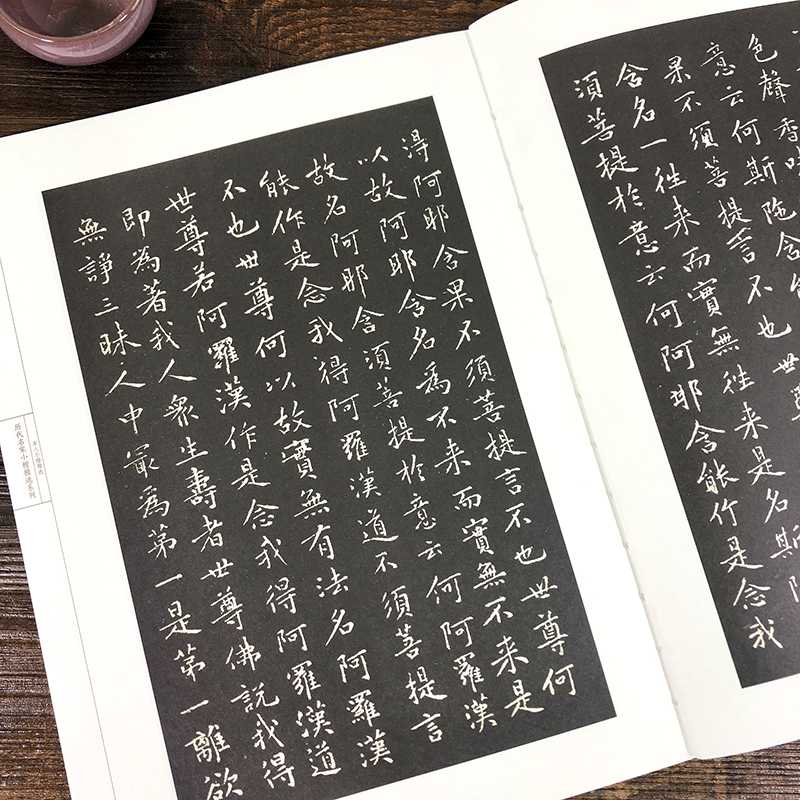 色聲香味
意云何斯陁含
果不須菩提言不也世尊
含名一往来而實無往来是名斯陁
須菩提於意云何阿耶含能作是念我
淂阿耶含果不須菩提言不也世尊何
以故阿耶含名為不来而實無不来是
故名阿耶含須菩提於意云何阿羅漢
能作是念我得阿羅漢道不須菩提言
不也世尊何以故實無有法名阿羅漢
世尊若阿羅漢作是念我得阿羅漢道
即為著我人衆生壽者世尊佛說我得
無諍三昧人中冣為第一是第一離欲
历代名家小楷精选系列